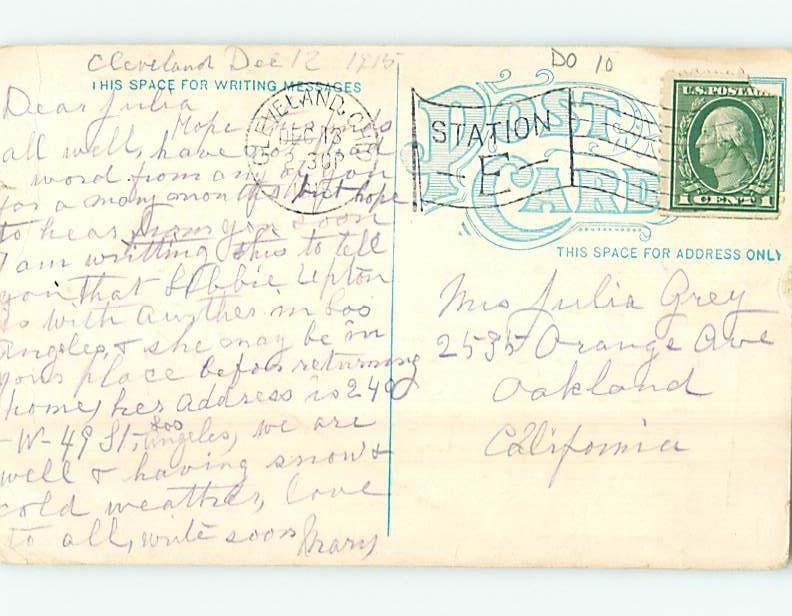 Cleveland Dec 12 1915
DO 10
THIS SPACE FOR WRITING MESSAGES
Dear Julia
Hope
all well, have had
word from any of you
for a many months but hope
to hear from you soon
I am writting this to tell
you that Libbie Upton
is with in Los
Angeles, & she may be in
your place before returning
home, her address is 240
-W- 49 St, Los Angeles, we are
well & having snow &
cold weather, love
to all, write soon Mary
CLEVELAND, OHIO
DEC 13
30P
STATION
-E-
POST
CARD
U.S. POSTAGE
1 CENT 1
THIS SPACE FOR ADDRESS ONLY
Mrs Julia Grey
2535 Orange Ave
Oakland
California